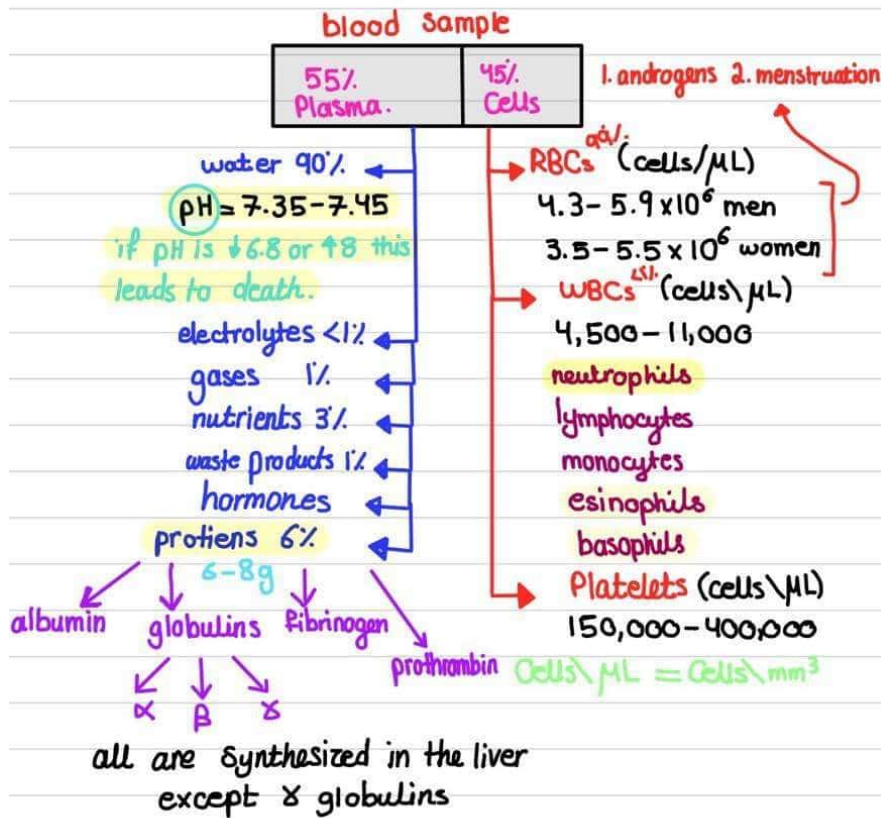 blood sample
55%
Plasma.
45%
Cells
1. androgens 2. menstruation
water 90%
pH = 7.35-7.45
if pH is ↓ 6.8 or ↑8 this
leads to death.
electrolytes <1%
gases 1%
nutrients 3%
waste products 1%
hormones
protiens 6%
6-8g
albumin
globulins
fibrinogen
prothrombin
α β γ
all are synthesized in the liver
except γ globulins
RBCs 99% (cells/μL)
4.3-5.9x10⁶ men
3.5-5.5x10⁶ women
WBCs <1% (cells\μL)
4,500-11,000
neutrophils
lymphocytes
monocytes
esinophils
basophils
Platelets (cells\μL)
150,000-400,000
Cells\μL = Cells\mm³